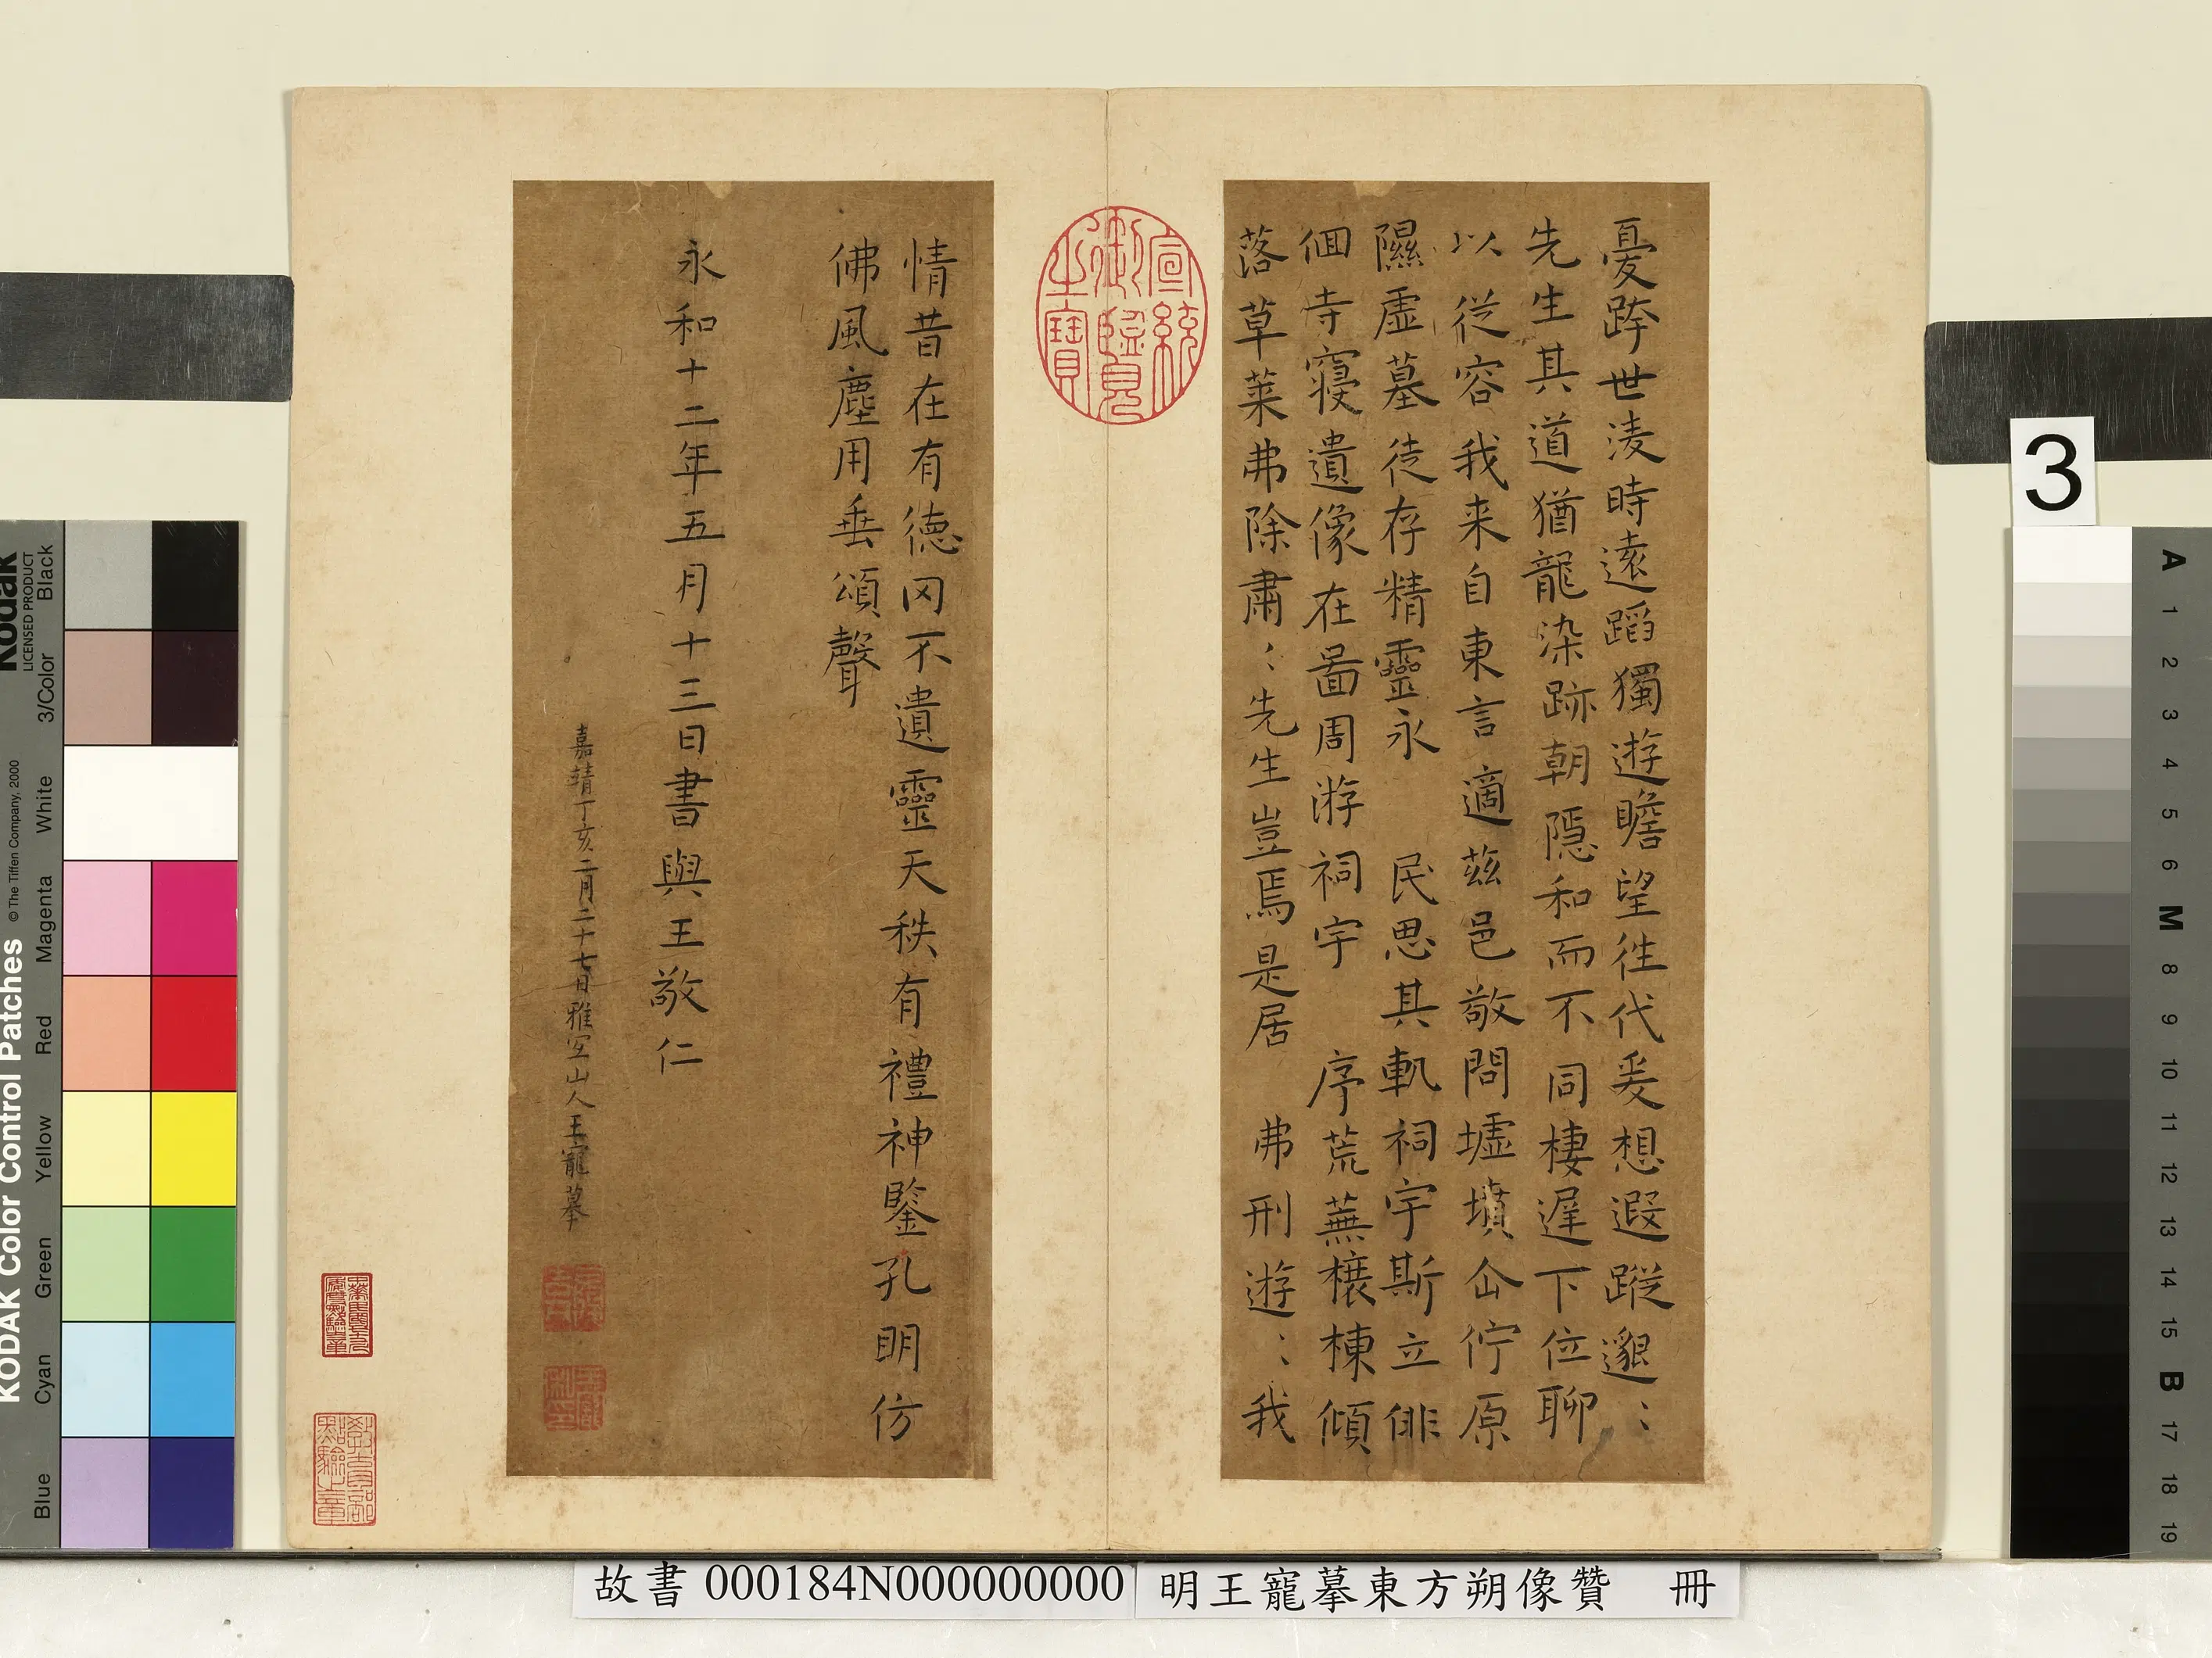 憂跨世淩時遠蹈獨遊瞻望往代爰想遐蹤邈〻
先生其道猶龍染跡朝隱和而不同棲遲下位聊
以從容我来自東言適茲邑敬問墟墳企佇原
隰虛墓徒存精靈永 民思其軌祠宇斯立俳
佪寺寢遺像在啚周游祠宇 序荒蕪榱棟傾
落草萊弗除肅〻先生豈焉是居 弗刑遊〻我
情昔在有德罔不遺靈天秩有禮神鑒孔明仿
佛風塵用垂頌聲
永和十二年五月十三日書與王敬仁
嘉靖丁亥二月二十七日雅宜山人王寵摹
宣統御覽之寶
教育部點驗之章
3
故書 000184N000000000 明王寵摹東方朔像贊 冊
KODAK Color Control Patches
Kodak
LICENSED PRODUCT
© The Tiffen Company, 2000
Blue Cyan Green Yellow Red Magenta White 3/Color Black
A 1 2 3 4 5 6 M 8 9 10 11 12 13 14 15 B 17 18 19